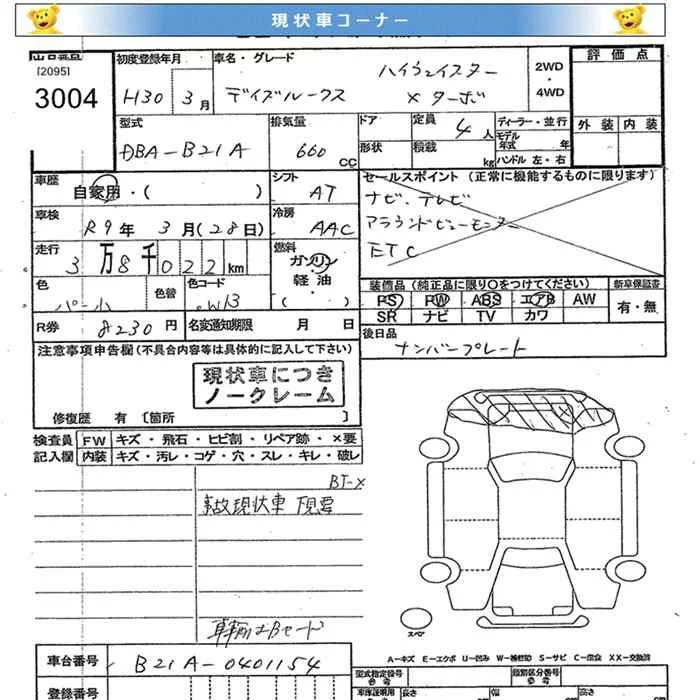 現状車コーナー
[2095]
3004
初度登録年月
H30 3月
車名・グレード
デイズルークス
ハイウェイスター
X ターボ
2WD
・
4WD
評価点
外装 内装
型式
DBA-B21A
排気量
660 CC
ドア
形状
定員 4人
積載 kg
ディーラー・並行
モデル年式 年
ハンドル 左・右
車歴
自家用・( )
シフト
AT
セールスポイント (正常に機能するものに限ります)
ナビ、テレビ
アラウンドビューモニター
ETC
車検
R9年 3月(28日)
冷房
AAC
走行
3万8千022km
燃料
ガソリン
軽油・
色
パール
色替
色コード
装備品 (純正品に限り○をつけてください)
PS PW ABS エアB AW
SR ナビ TV カワ
新車保証書
有・無
R券 8230円
名変通知期限 月 日
後日品
ナンバープレート
注意事項申告欄(不具合内容等は具体的に記入して下さい)
現状車につき
ノークレーム
修復歴 有〔箇所 〕
検査員
記入欄
FW キズ・飛石・ヒビ割・リペア跡・×要
内装 キズ・汚レ・コゲ・穴・スレ・キレ・破レ
BT-X
事故現状車 下見要
スペア
A-キズ E-エクボ U-凹み W-補修跡 S-サビ C-腐食 XX-交換済
車台番号
B21A-0401154
登録番号
型式指定番号
参考
類別区分番号
参考
車庫証明用
参考
長さ
幅
高さ